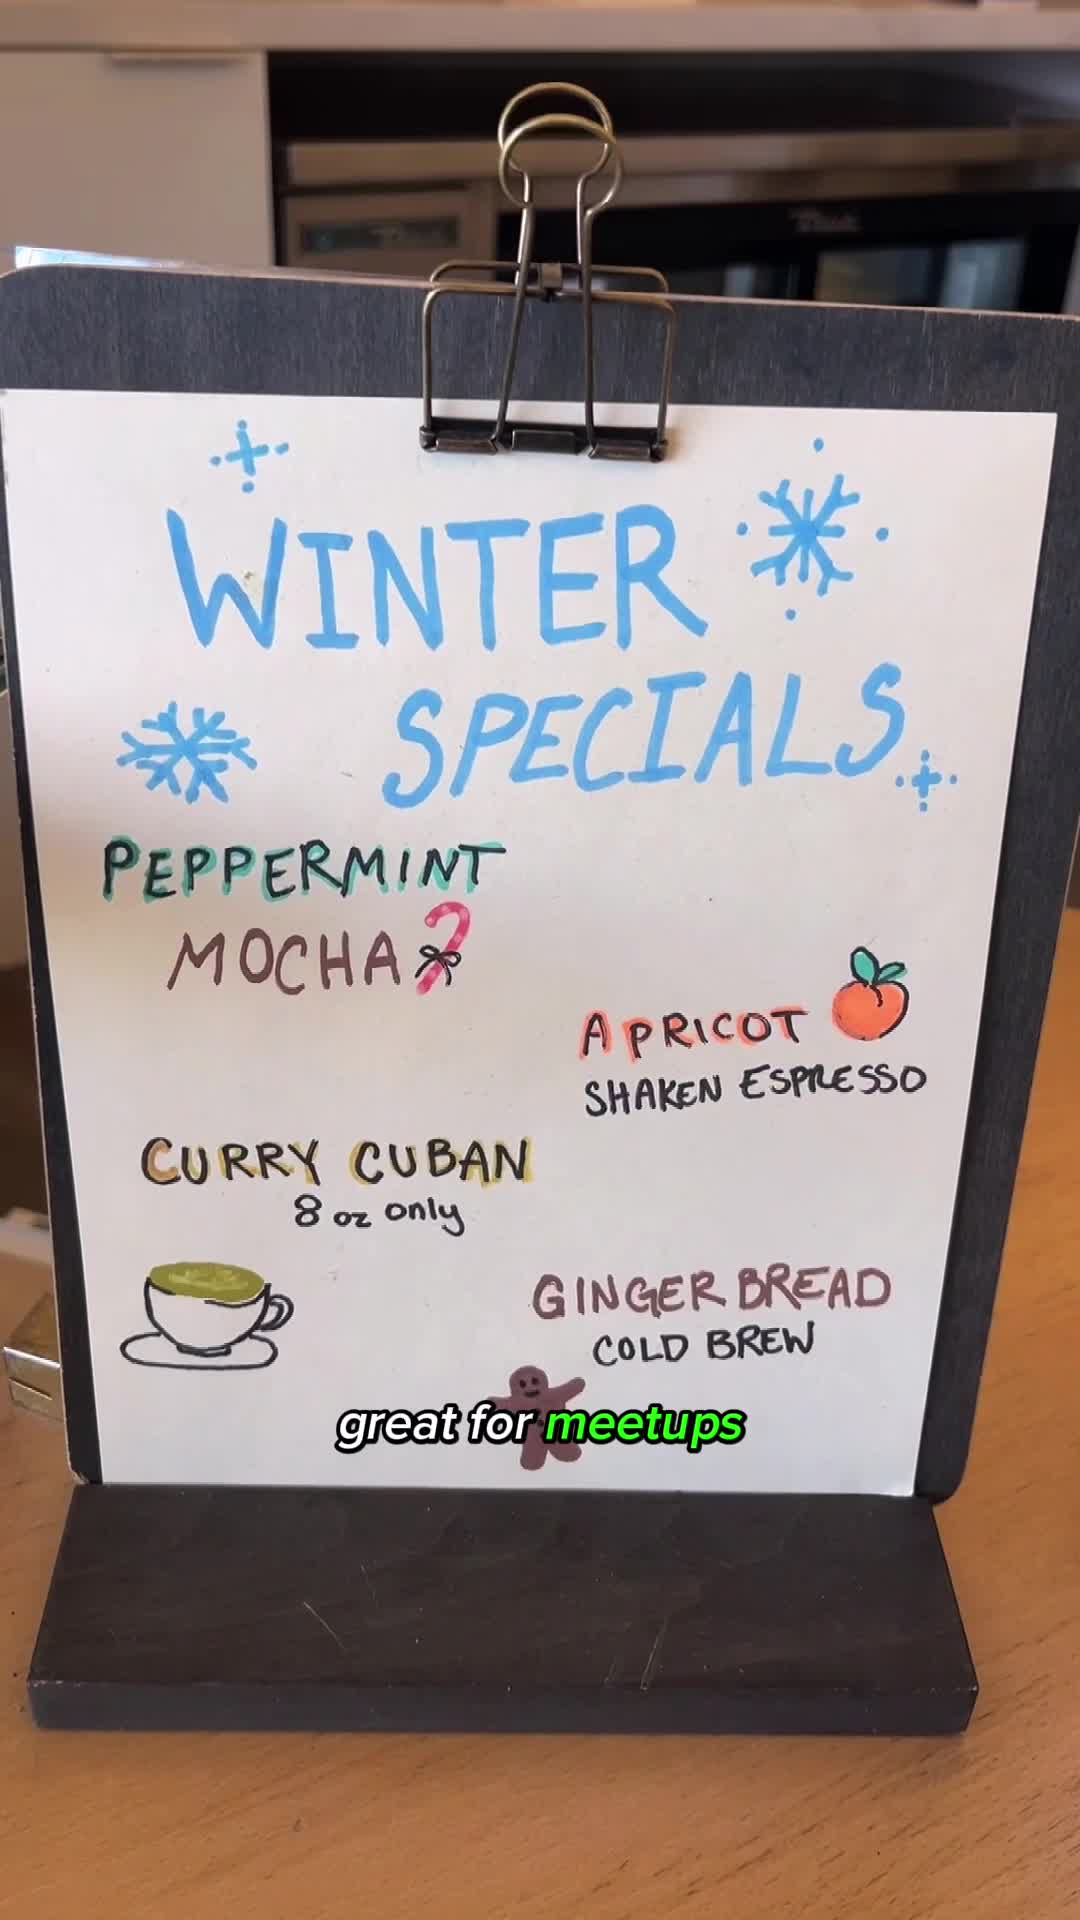 WINTER
SPECIALS
PEPPERMINT
MOCHA
APRICOT
SHAKEN ESPRESSO
CURRY CUBAN
8 oz only
GINGERBREAD
COLD BREW
great for meetups